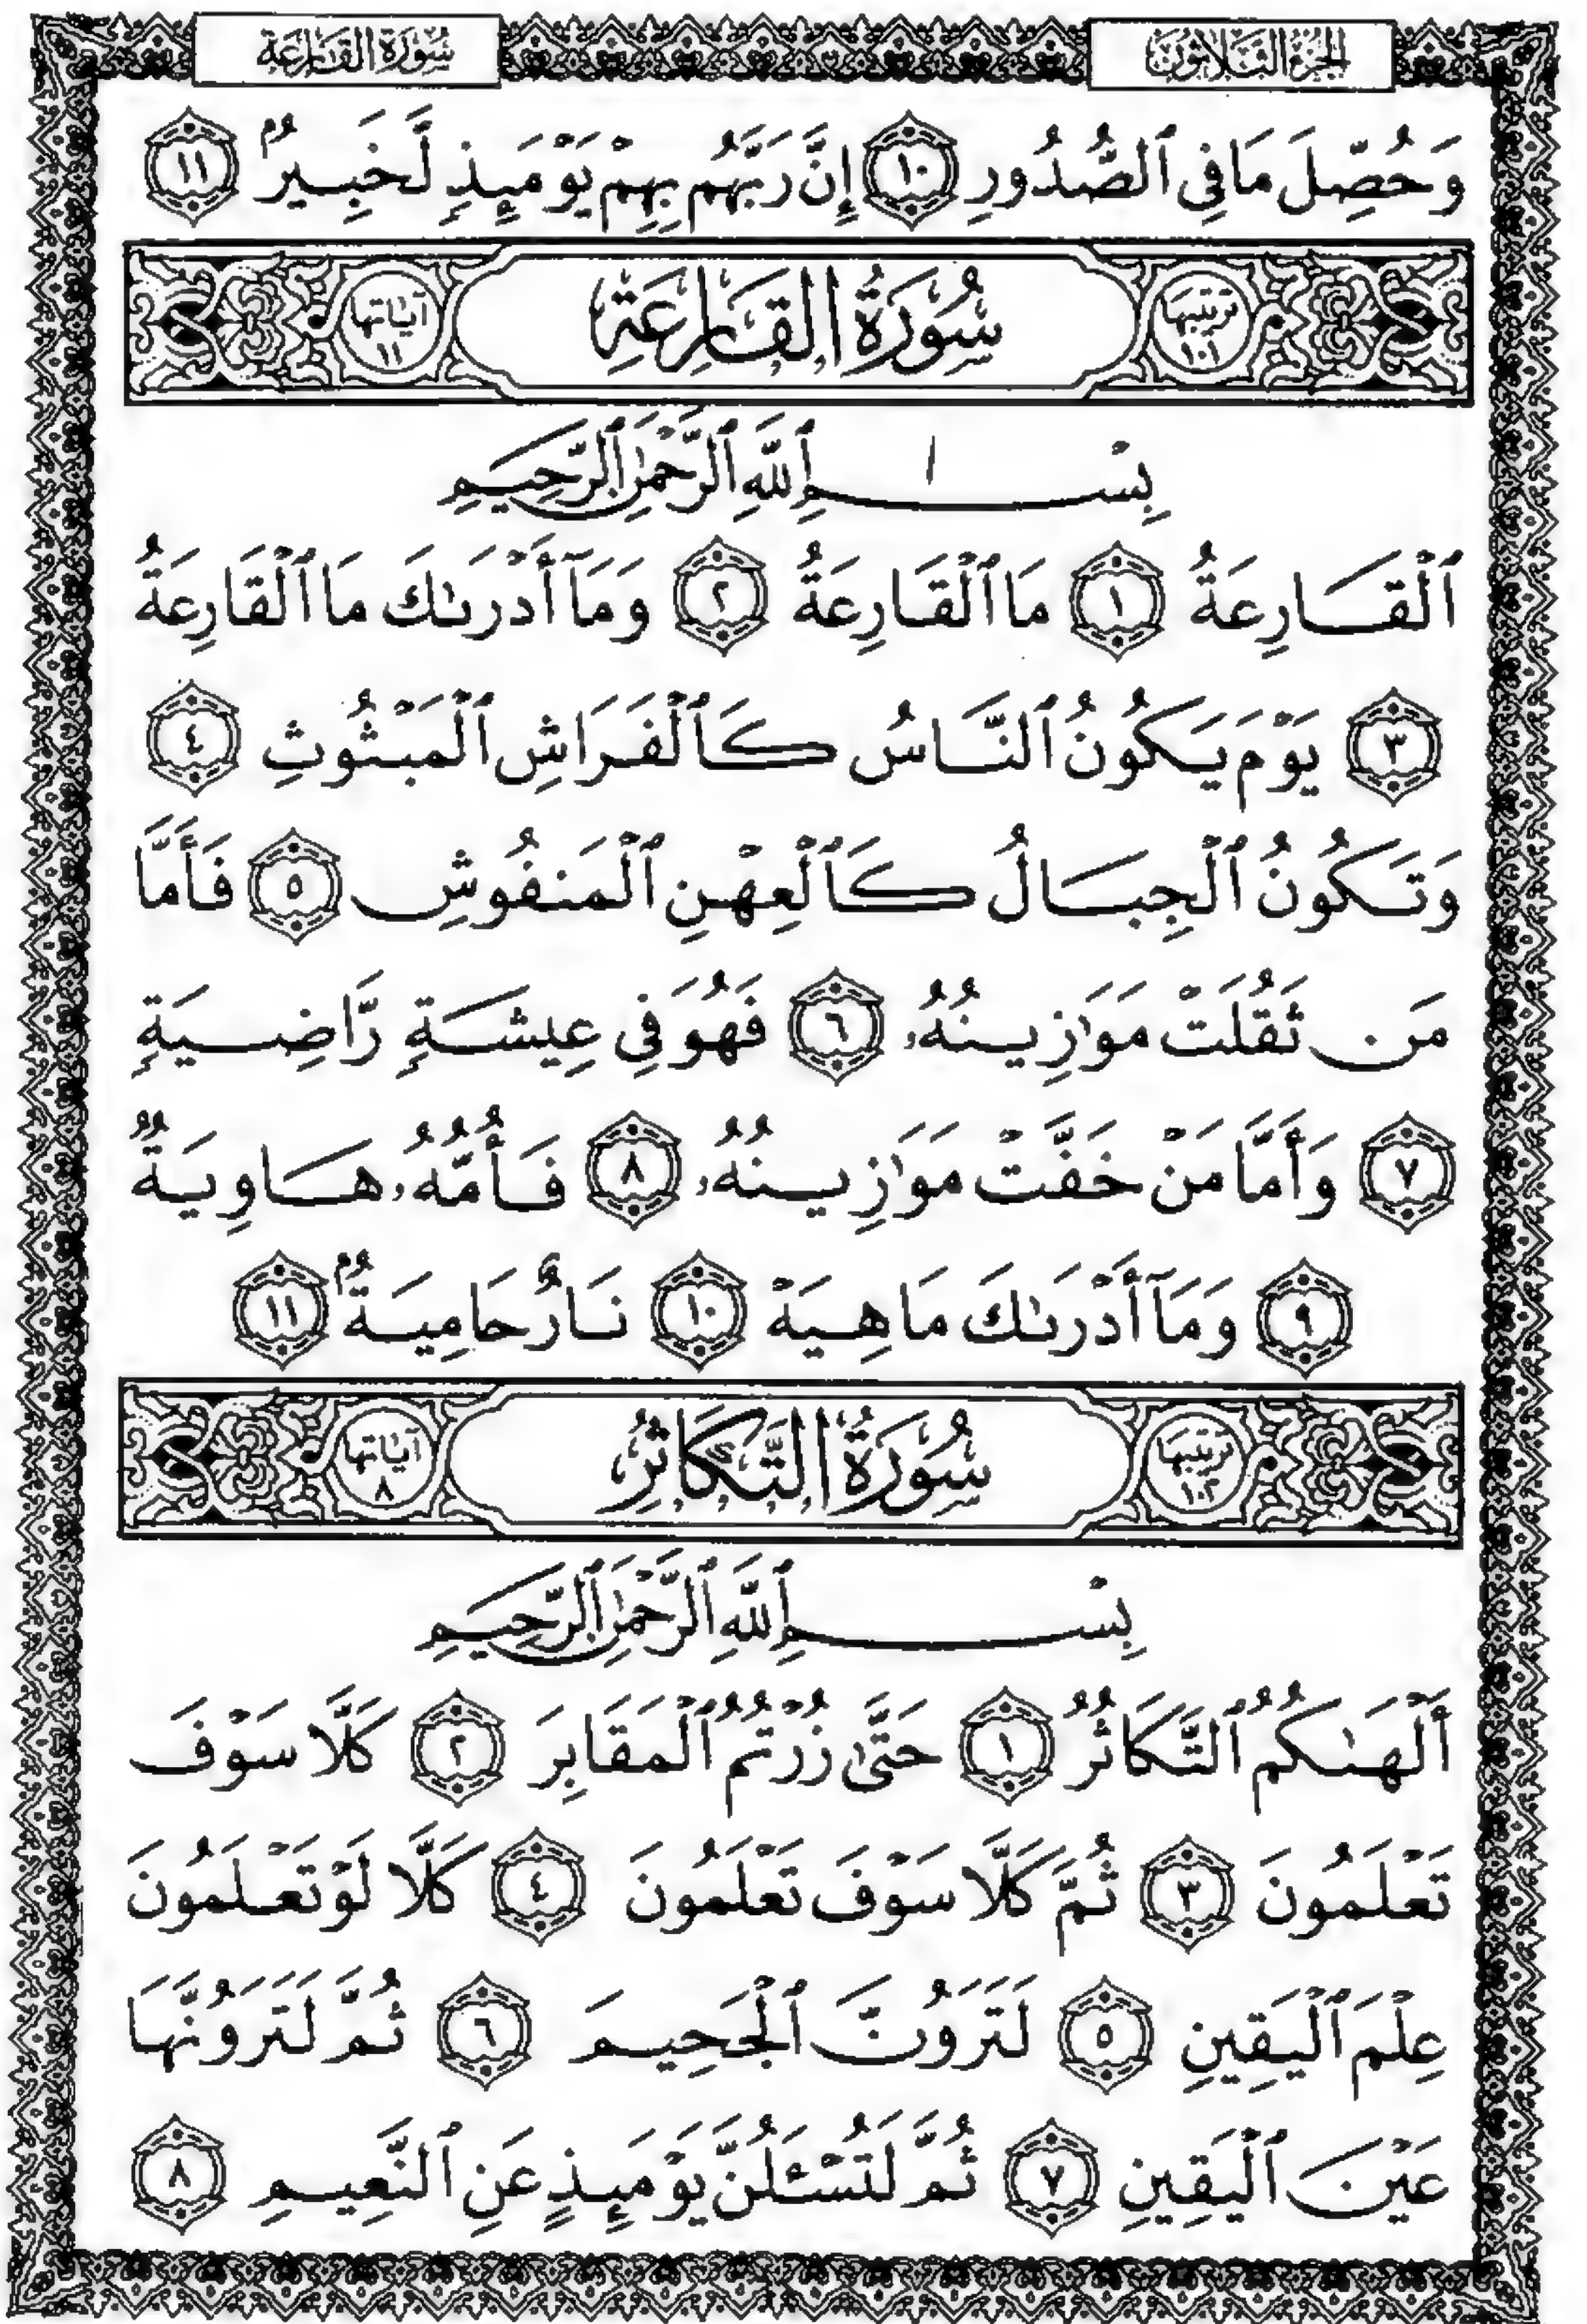 الجزء الثلاثون
سورة القارعة
وَحُصِّلَ مَا فِى ٱلصُّدُورِ ١٠ إِنَّ رَبَّهُم بِهِمْ يَوْمَئِذٍ لَّخَبِيرٌۢ ١١
ترتيبها ١٠١ سُورَةُ القَارِعَةِ آياتها ١١
بِسْمِ ٱللَّهِ ٱلرَّحْمَٰنِ ٱلرَّحِيمِ
ٱلْقَارِعَةُ ١ مَا ٱلْقَارِعَةُ ٢ وَمَآ أَدْرَىٰكَ مَا ٱلْقَارِعَةُ
٣ يَوْمَ يَكُونُ ٱلنَّاسُ كَٱلْفَرَاشِ ٱلْمَبْثُوثِ ٤
وَتَكُونُ ٱلْجِبَالُ كَٱلْعِهْنِ ٱلْمَنفُوشِ ٥ فَأَمَّا
مَن ثَقُلَتْ مَوَٰزِينُهُۥ ٦ فَهُوَ فِى عِيشَةٍ رَّاضِيَةٍ
٧ وَأَمَّا مَنْ خَفَّتْ مَوَٰزِينُهُۥ ٨ فَأُمُّهُۥ هَاوِيَةٌ
٩ وَمَآ أَدْرَىٰكَ مَا هِيَهْ ١٠ نَارٌ حَامِيَةٌۢ ١١
ترتيبها ١٠٢ سُورَةُ التَّكَاثُرِ آياتها ٨
بِسْمِ ٱللَّهِ ٱلرَّحْمَٰنِ ٱلرَّحِيمِ
أَلْهَىٰكُمُ ٱلتَّكَاثُرُ ١ حَتَّىٰ زُرْتُمُ ٱلْمَقَابِرَ ٢ كَلَّا سَوْفَ
تَعْلَمُونَ ٣ ثُمَّ كَلَّا سَوْفَ تَعْلَمُونَ ٤ كَلَّا لَوْ تَعْلَمُونَ
عِلْمَ ٱلْيَقِينِ ٥ لَتَرَوُنَّ ٱلْجَحِيمَ ٦ ثُمَّ لَتَرَوُنَّهَا
عَيْنَ ٱلْيَقِينِ ٧ ثُمَّ لَتُسْـَٔلُنَّ يَوْمَئِذٍ عَنِ ٱلنَّعِيمِ ٨